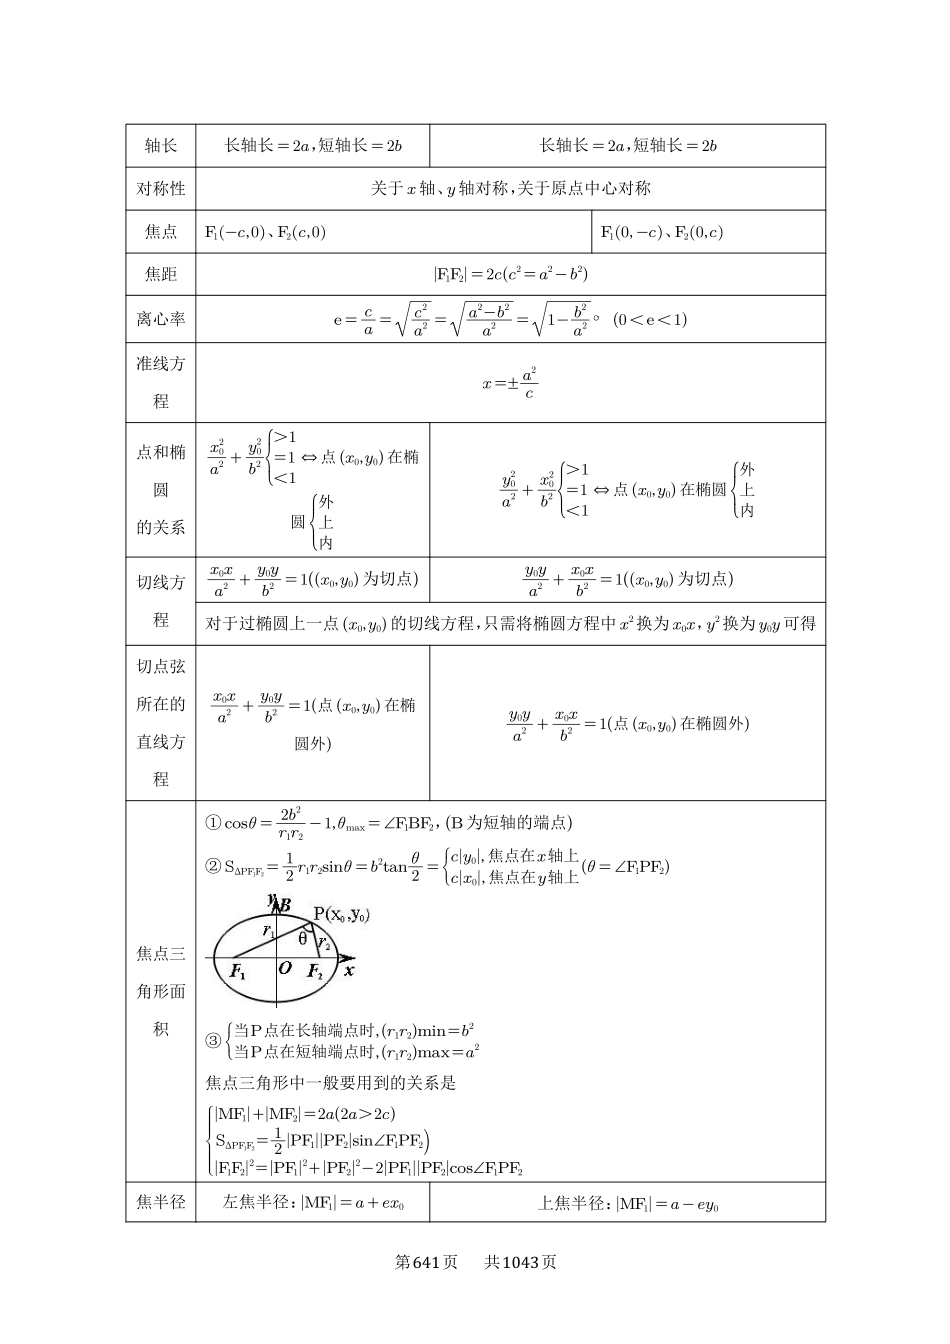 轴长 长轴长=2a,短轴长=2b 长轴长=2a,短轴长=2b
对称性 关于 x 轴、y 轴对称,关于原点中心对称
焦点 F₁(−c,0)、F₂(c,0) F₁(0,−c)、F₂(0,c)
焦距 |F₁F₂|=2c(c²=a²−b²)
离心率 e=c/a=√(c²/a²)=√((a²−b²)/a²)=√(1−b²/a²)。(0<e<1)
准线方
程
x=±a²/c
点和椭
圆
的关系
x₀²/a²+y₀²/b² {>1 =1 <1 ⇔点(x₀,y₀)在椭
圆{外 上 内
y₀²/a²+x₀²/b² {>1 =1 <1 ⇔点(x₀,y₀)在椭圆{外 上 内
切线方
程
x₀x/a²+y₀y/b²=1((x₀,y₀)为切点) y₀y/a²+x₀x/b²=1((x₀,y₀)为切点)
对于过椭圆上一点(x₀,y₀)的切线方程,只需将椭圆方程中x²换为x₀x,y²换为y₀y可得
切点弦
所在的
直线方
程
x₀x/a²+y₀y/b²=1(点(x₀,y₀)在椭
圆外)
y₀y/a²+x₀x/b²=1(点(x₀,y₀)在椭圆外)
焦点三
角形面
积
①cosθ=2b²/(r₁r₂)−1,θmax=∠F₁BF₂,(B为短轴的端点)
②S△PF₁F₂=1/2 r₁r₂sinθ=b²tan θ/2={c|y₀|,焦点在x轴上 c|x₀|,焦点在y轴上 (θ=∠F₁PF₂)
y B
P(x₀,y₀)
r₁ θ r₂
F₁ O F₂ x
③{当P点在长轴端点时,(r₁r₂)min=b²
当P点在短轴端点时,(r₁r₂)max=a²
焦点三角形中一般要用到的关系是
{|MF₁|+|MF₂|=2a(2a>2c)
S△PF₁F₂=1/2|PF₁||PF₂|sin∠F₁PF₂)
|F₁F₂|²=|PF₁|²+|PF₂|²−2|PF₁||PF₂|cos∠F₁PF₂
焦半径 左焦半径:|MF₁|=a+ex₀ 上焦半径:|MF₁|=a−ey₀
第641页 共1043页